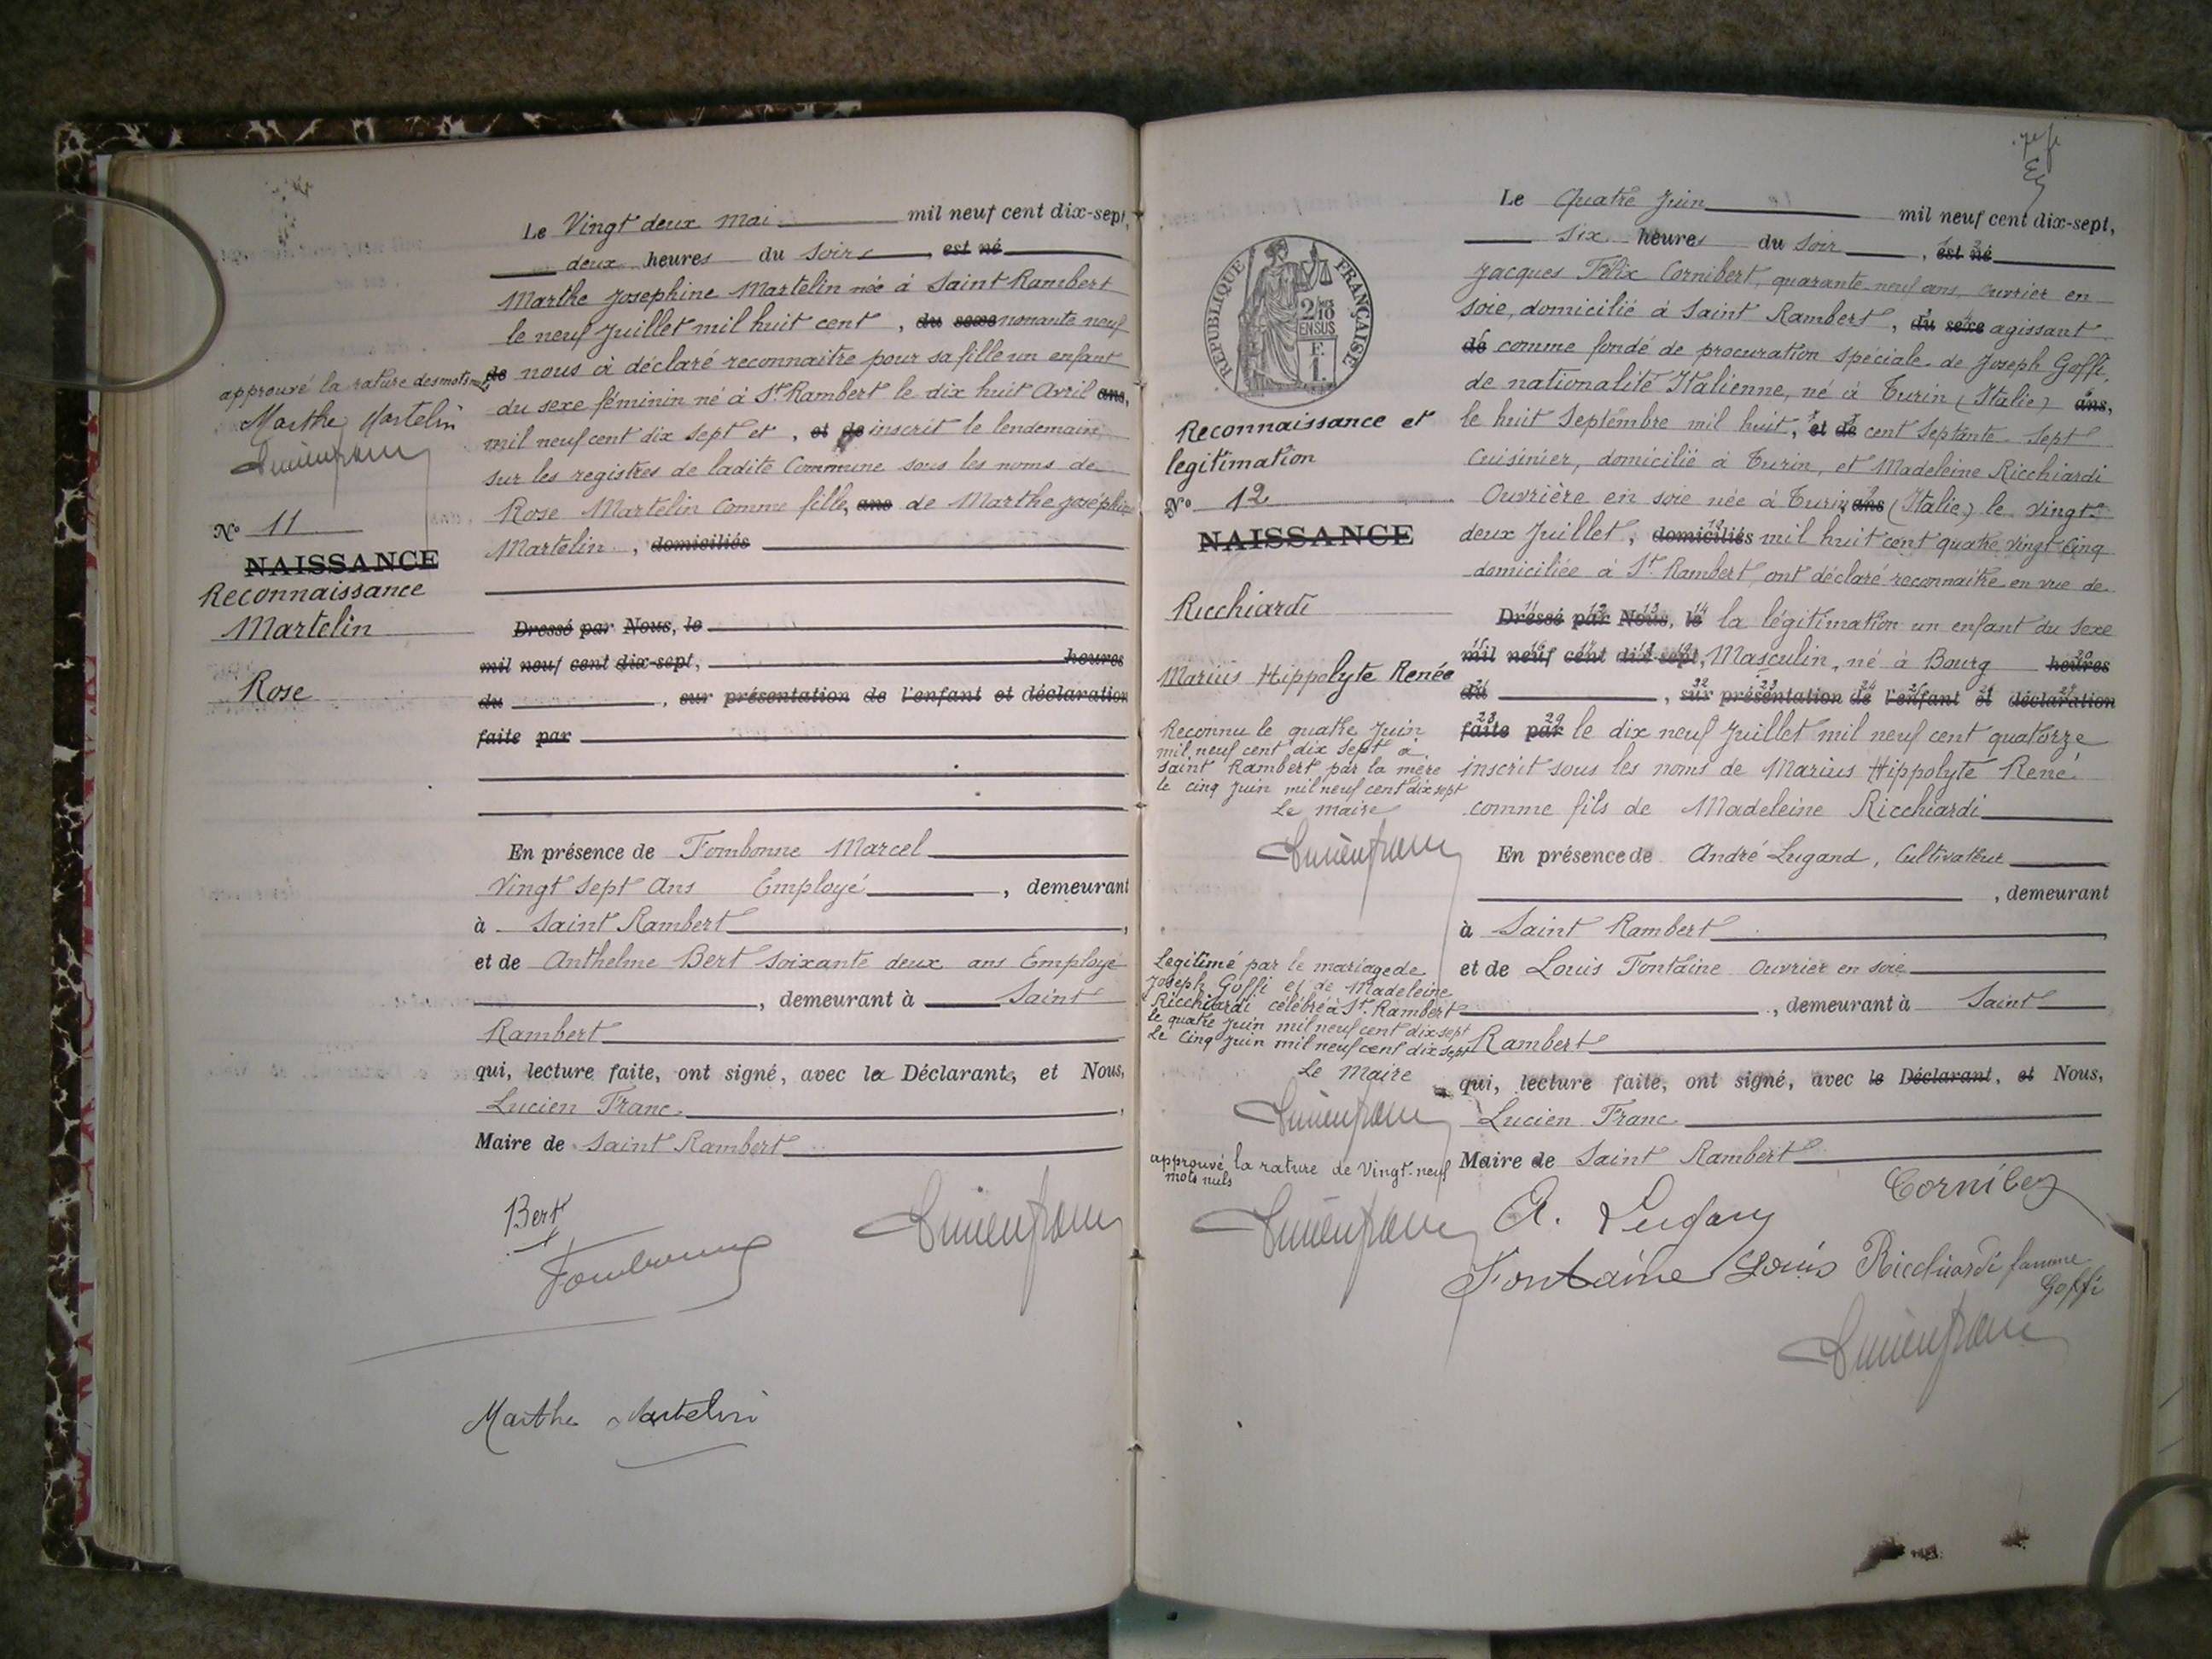 approuvé la rature des mots nuls
Marthe Martelin
N° 11
NAISSANCE
Reconnaissance
Martelin
Rose
Le Vingt deux Mai mil neuf cent dix-sept,
deux heures du Soir, est né
Marthe Josephine Martelin née à Saint Rambert
le neuf Juillet mil huit cent, du sexe nonante neuf
de nous à déclaré reconnaitre pour sa fille un enfant
du sexe féminin né à St. Rambert le dix huit Avril ans,
mil neuf cent dix sept et, et de inscrit le lendemain
sur les registres de ladite Commune sous les noms de
Rose Martelin Comme fille, ans de Marthe Joséphine
Martelin, domiciliés
Dressé par Nous, le
mil neuf cent dix-sept, heures
du , sur présentation de l'enfant et déclaration
faite par
En présence de Fombonne Marcel
Vingt Sept Ans Employé, demeurant
à Saint Rambert,
et de Anthelme Bert Soixante deux ans Employé
, demeurant à Saint
Rambert
qui, lecture faite, ont signé, avec la Déclarante, et Nous,
Lucien Franc,
Maire de Saint Rambert
Bert
Marthe Martelin
REPUBLIQUE FRANÇAISE
2/10
EN SUS
F.
1.
Reconnaissance et
legitimation
N° 12
NAISSANCE
Ricchiardi
Marius Hippolyte Renée
Reconnu le quatre Juin
mil neuf cent dix sept a
Saint Rambert par la mère
le cinq Juin mil neuf cent dix sept
Le Maire
Legitimé par le mariage de
Joseph Goffi et de Madeleine
Ricchiardi célébré à St. Rambert
le quatre Juin mil neuf cent dix sept
Le Cinq Juin mil neuf cent dix sept
Le Maire
approuvé la rature de Vingt-neuf
mots nuls
Le Quatre Juin mil neuf cent dix-sept,
Six heures du Soir, est né
Jacques Félix Cornibert, quarante-neuf ans, Ouvrier en
Soie, domicilié à Saint Rambert, du sexe agissant
de comme fondé de procuration spéciale de Joseph Goffi,
de nationalité Italienne, né à Turin (Italie) ans,
le huit Septembre mil huit, et de cent Septante-Sept
Cuisinier, domicilié à Turin, et Madeleine Ricchiardi
Ouvrière en soie née à Turin ans (Italie) le Vingt-
deux Juillet, domiciliés mil huit cent quatre Vingt Cinq
domiciliée à St. Rambert, ont déclaré reconnaitre en vue de
Dressé par Nous, le la légitimation un enfant du Sexe
mil neuf cent dix-sept, Masculin, né à Bourg heures
du , sur présentation de l'enfant et déclaration
faite par le dix neuf Juillet mil neuf cent quatorze
inscrit sous les noms de Marius Hippolyte René
comme fils de Madeleine Ricchiardi
En présence de André Lugand, Cultivateur
, demeurant
à Saint Rambert,
et de Louis Fontaine Ouvrier en soie
, demeurant à Saint
Rambert
qui, lecture faite, ont signé, avec le Déclarant, et Nous,
Lucien Franc.
Maire de Saint Rambert
A. Lugand
Fontaine Louis Ricchiardi famme
Goffi